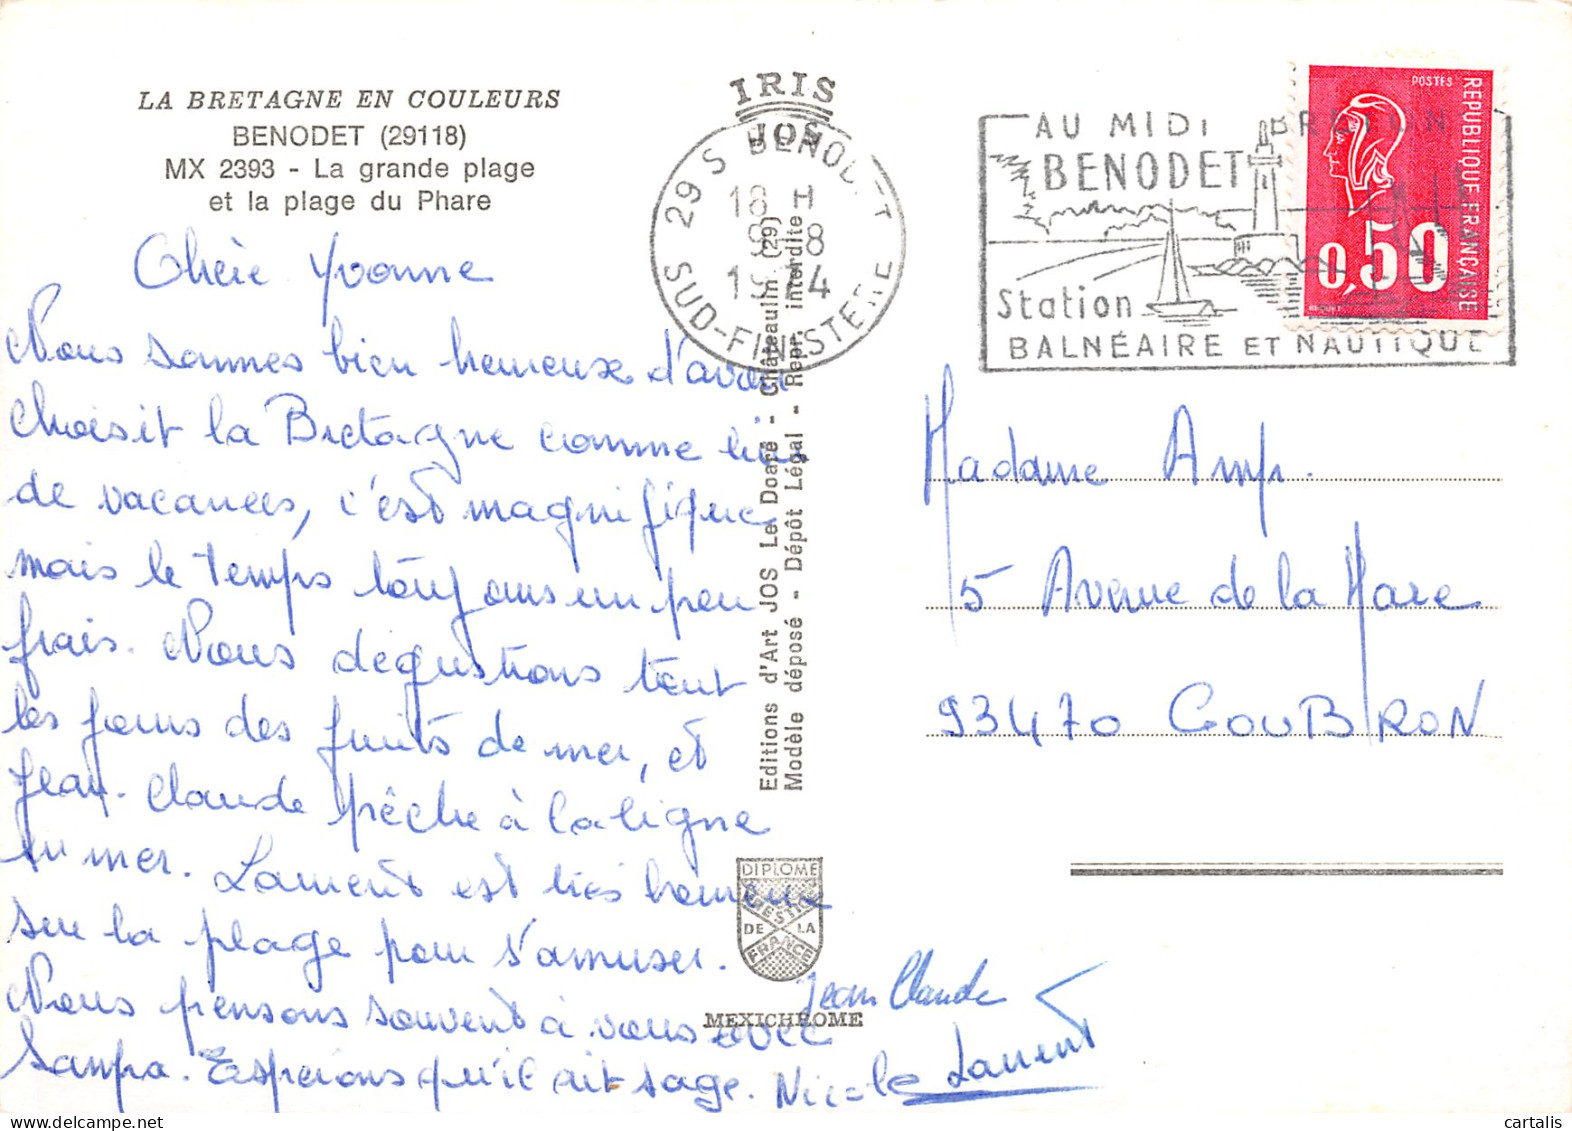 LA BRETAGNE EN COULEURS
BENODET (29118)
MX 2393 - La grande plage
et la plage du Phare
Chère Yvonne
Nous sommes bien heureux d'avoir
choisit la Bretagne comme lieu
de vacances, c'est magnifique
mais le temps toujours un peu
frais. Nous dégustons tout
les jours des fruits de mer, et
Jean-Claude pêche à la ligne
en mer. Laurent est très heureux
sur la plage pour s'amuser.
Nous pensons souvent à vous avec
Sampa. Espérons qu'il ait sage.
Nicole
Jean Claude
Laurent
IRIS
JOS
Editions d'Art JOS Le Doaré - Châteaulin (29)
Modèle déposé - Dépôt Légal - Repr. interdite
DIPLOME
PRESTIGE
DE LA
FRANCE
MEXICHROME
29 S BENODET
18 H
8
1974
SUD-FINISTERE
AU MIDI BRETON
BENODET
Station
BALNÉAIRE ET NAUTIQUE
POSTES
REPUBLIQUE FRANÇAISE
0,50
BEQUET
Madame Amp.
5 Avenue de la Mare
93470 COUBRON
cartalis